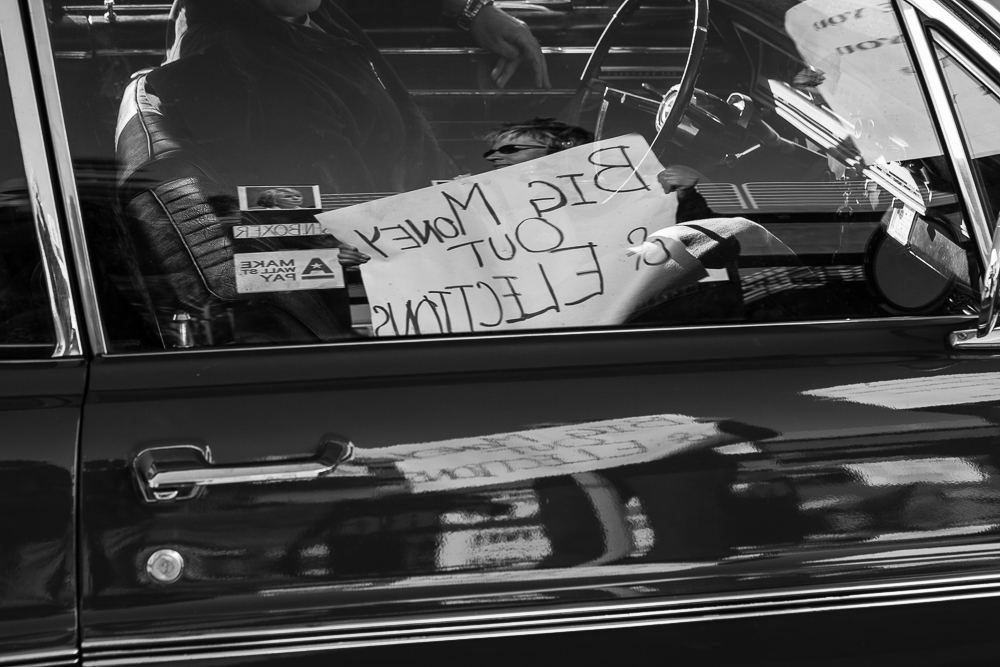 BIG MONEY
OUT
OF
ELECTIONS
NBOXER
MAKE
WALL ST
PAY
YOU